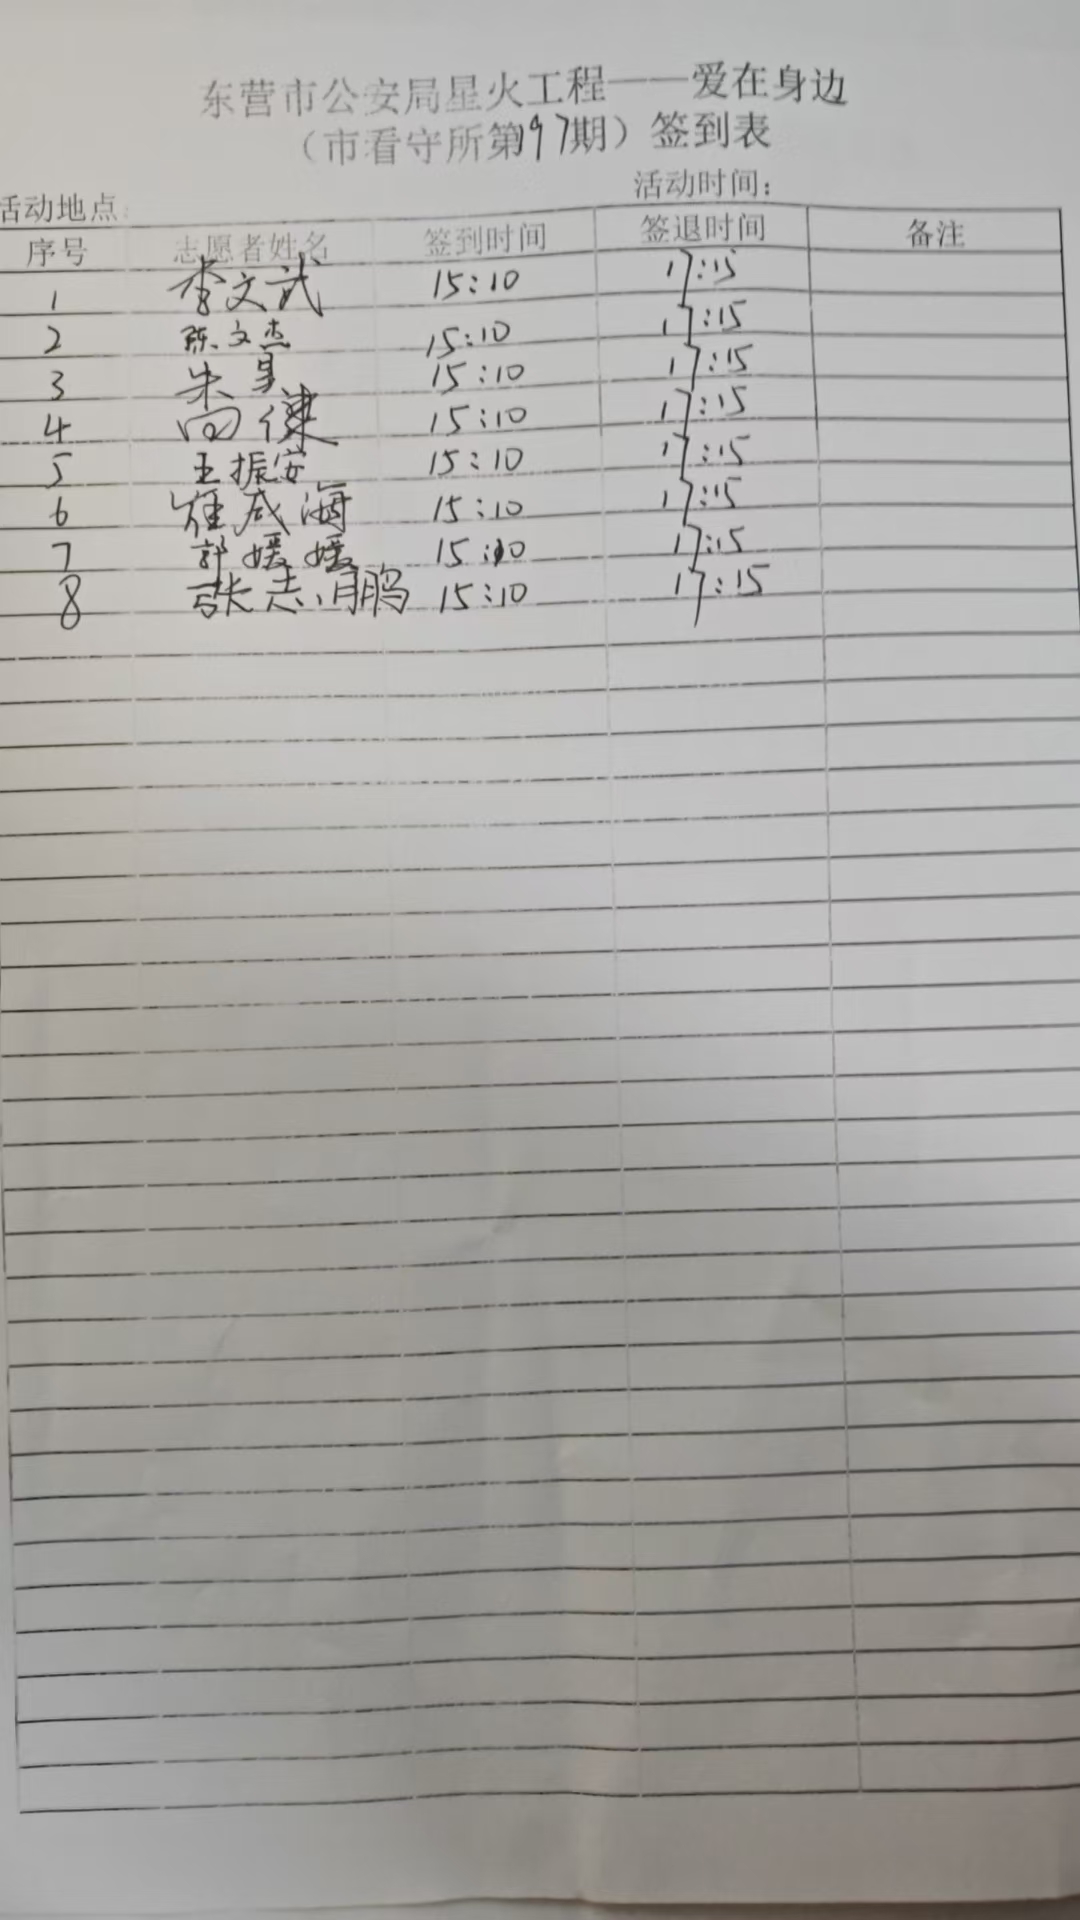 东营市公安局星火工程——爱在身边
（市看守所第97期）签到表
活动地点： 活动时间：
序号 志愿者姓名 签到时间 签退时间 备注
1 李文武 15:10 17:15
2 陈文杰 15:10 17:15
3 朱 15:10 17:15
4 15:10 17:15
5 王振安 15:10 17:15
6 崔咸海 15:10 17:15
7 郭媛媛 15:10 17:15
8 张志鹏 15:10 17:15